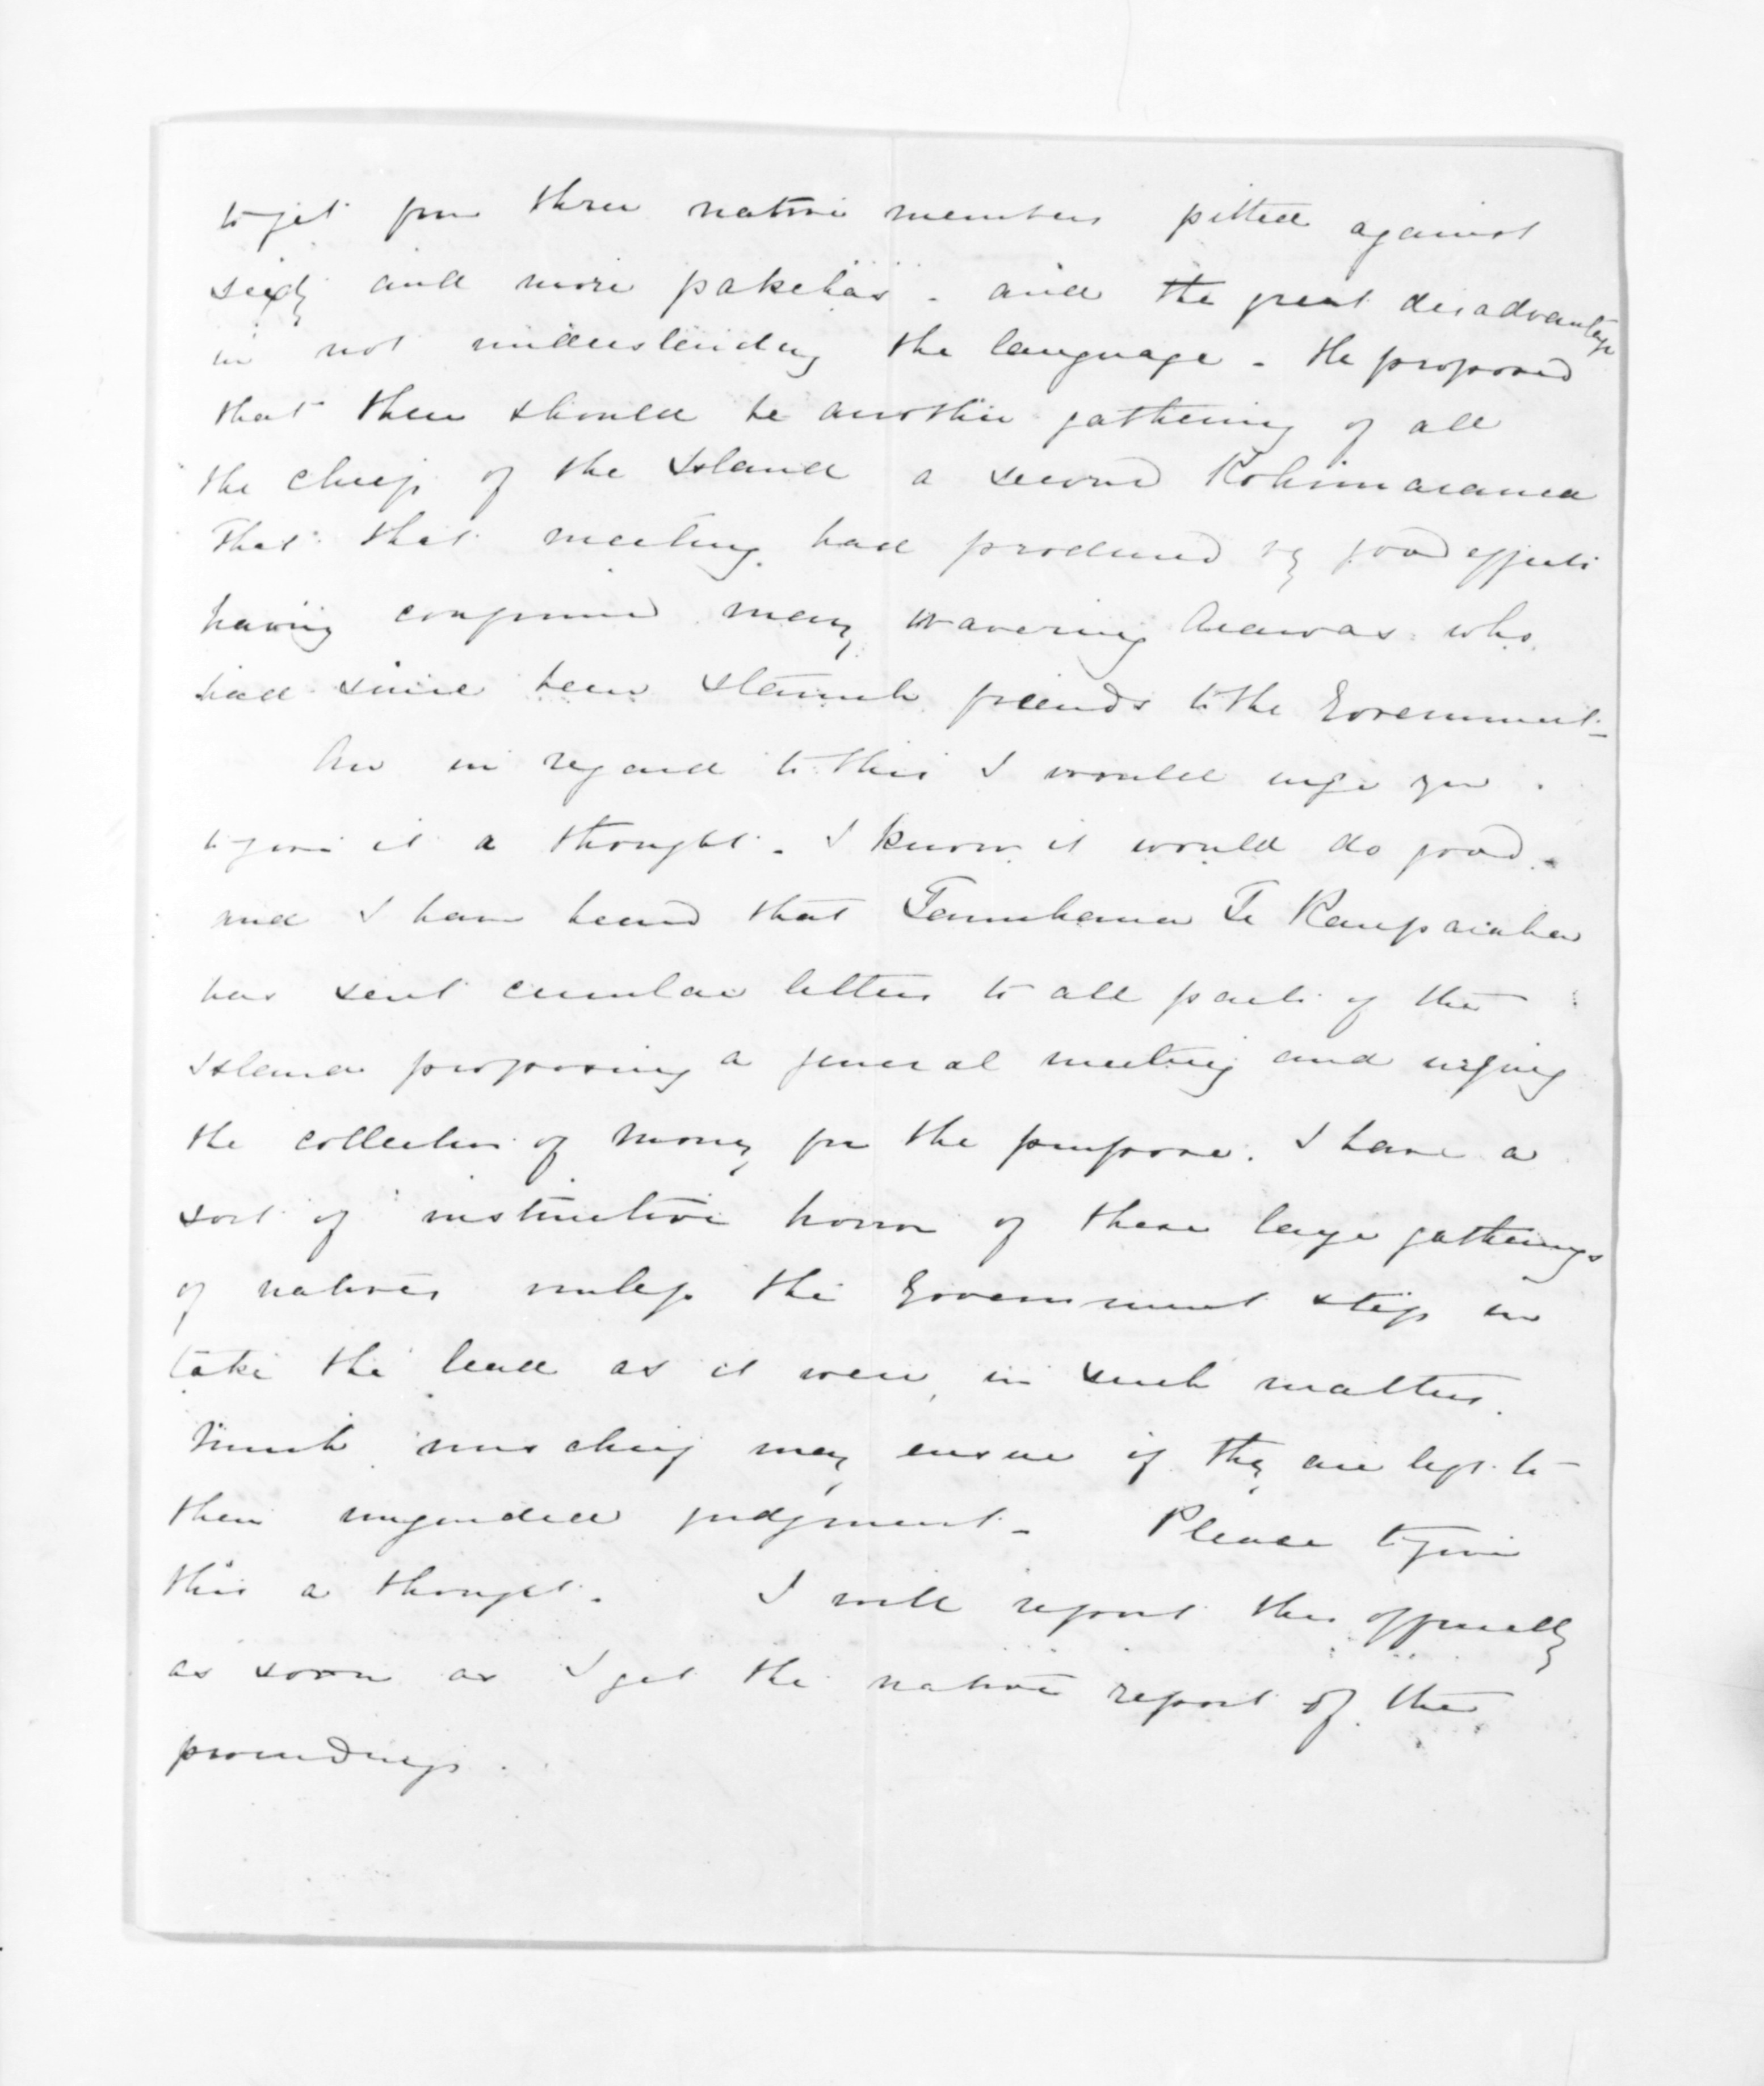 to get from three native members pitted against
sixty and more pakehas - and the great disadvantage
in not understanding the language - He proposed
that there should be another gathering of all
the chiefs of the Island a second Kohimarama
That that meeting had produced good effects
having confirmed many wavering Arawas who
had since been staunch friends to the Government -
in regard to this I would urge you
to give it a thought - I know it would do good -
and I have heard that Tamihana Te Rauparaha
has sent circular letters to all parts of the
Island proposing a general meeting and urging
the collection of money for the purpose. I have a
sort of instinctive horror of these large gatherings
of natives unless the Government step in
take the lead as it were in such matters.
Much mischief may ensue if they are left to
their unguided judgment - Please to give
this a thought. I will report this officially
as soon as I get the native report of the
proceedings.